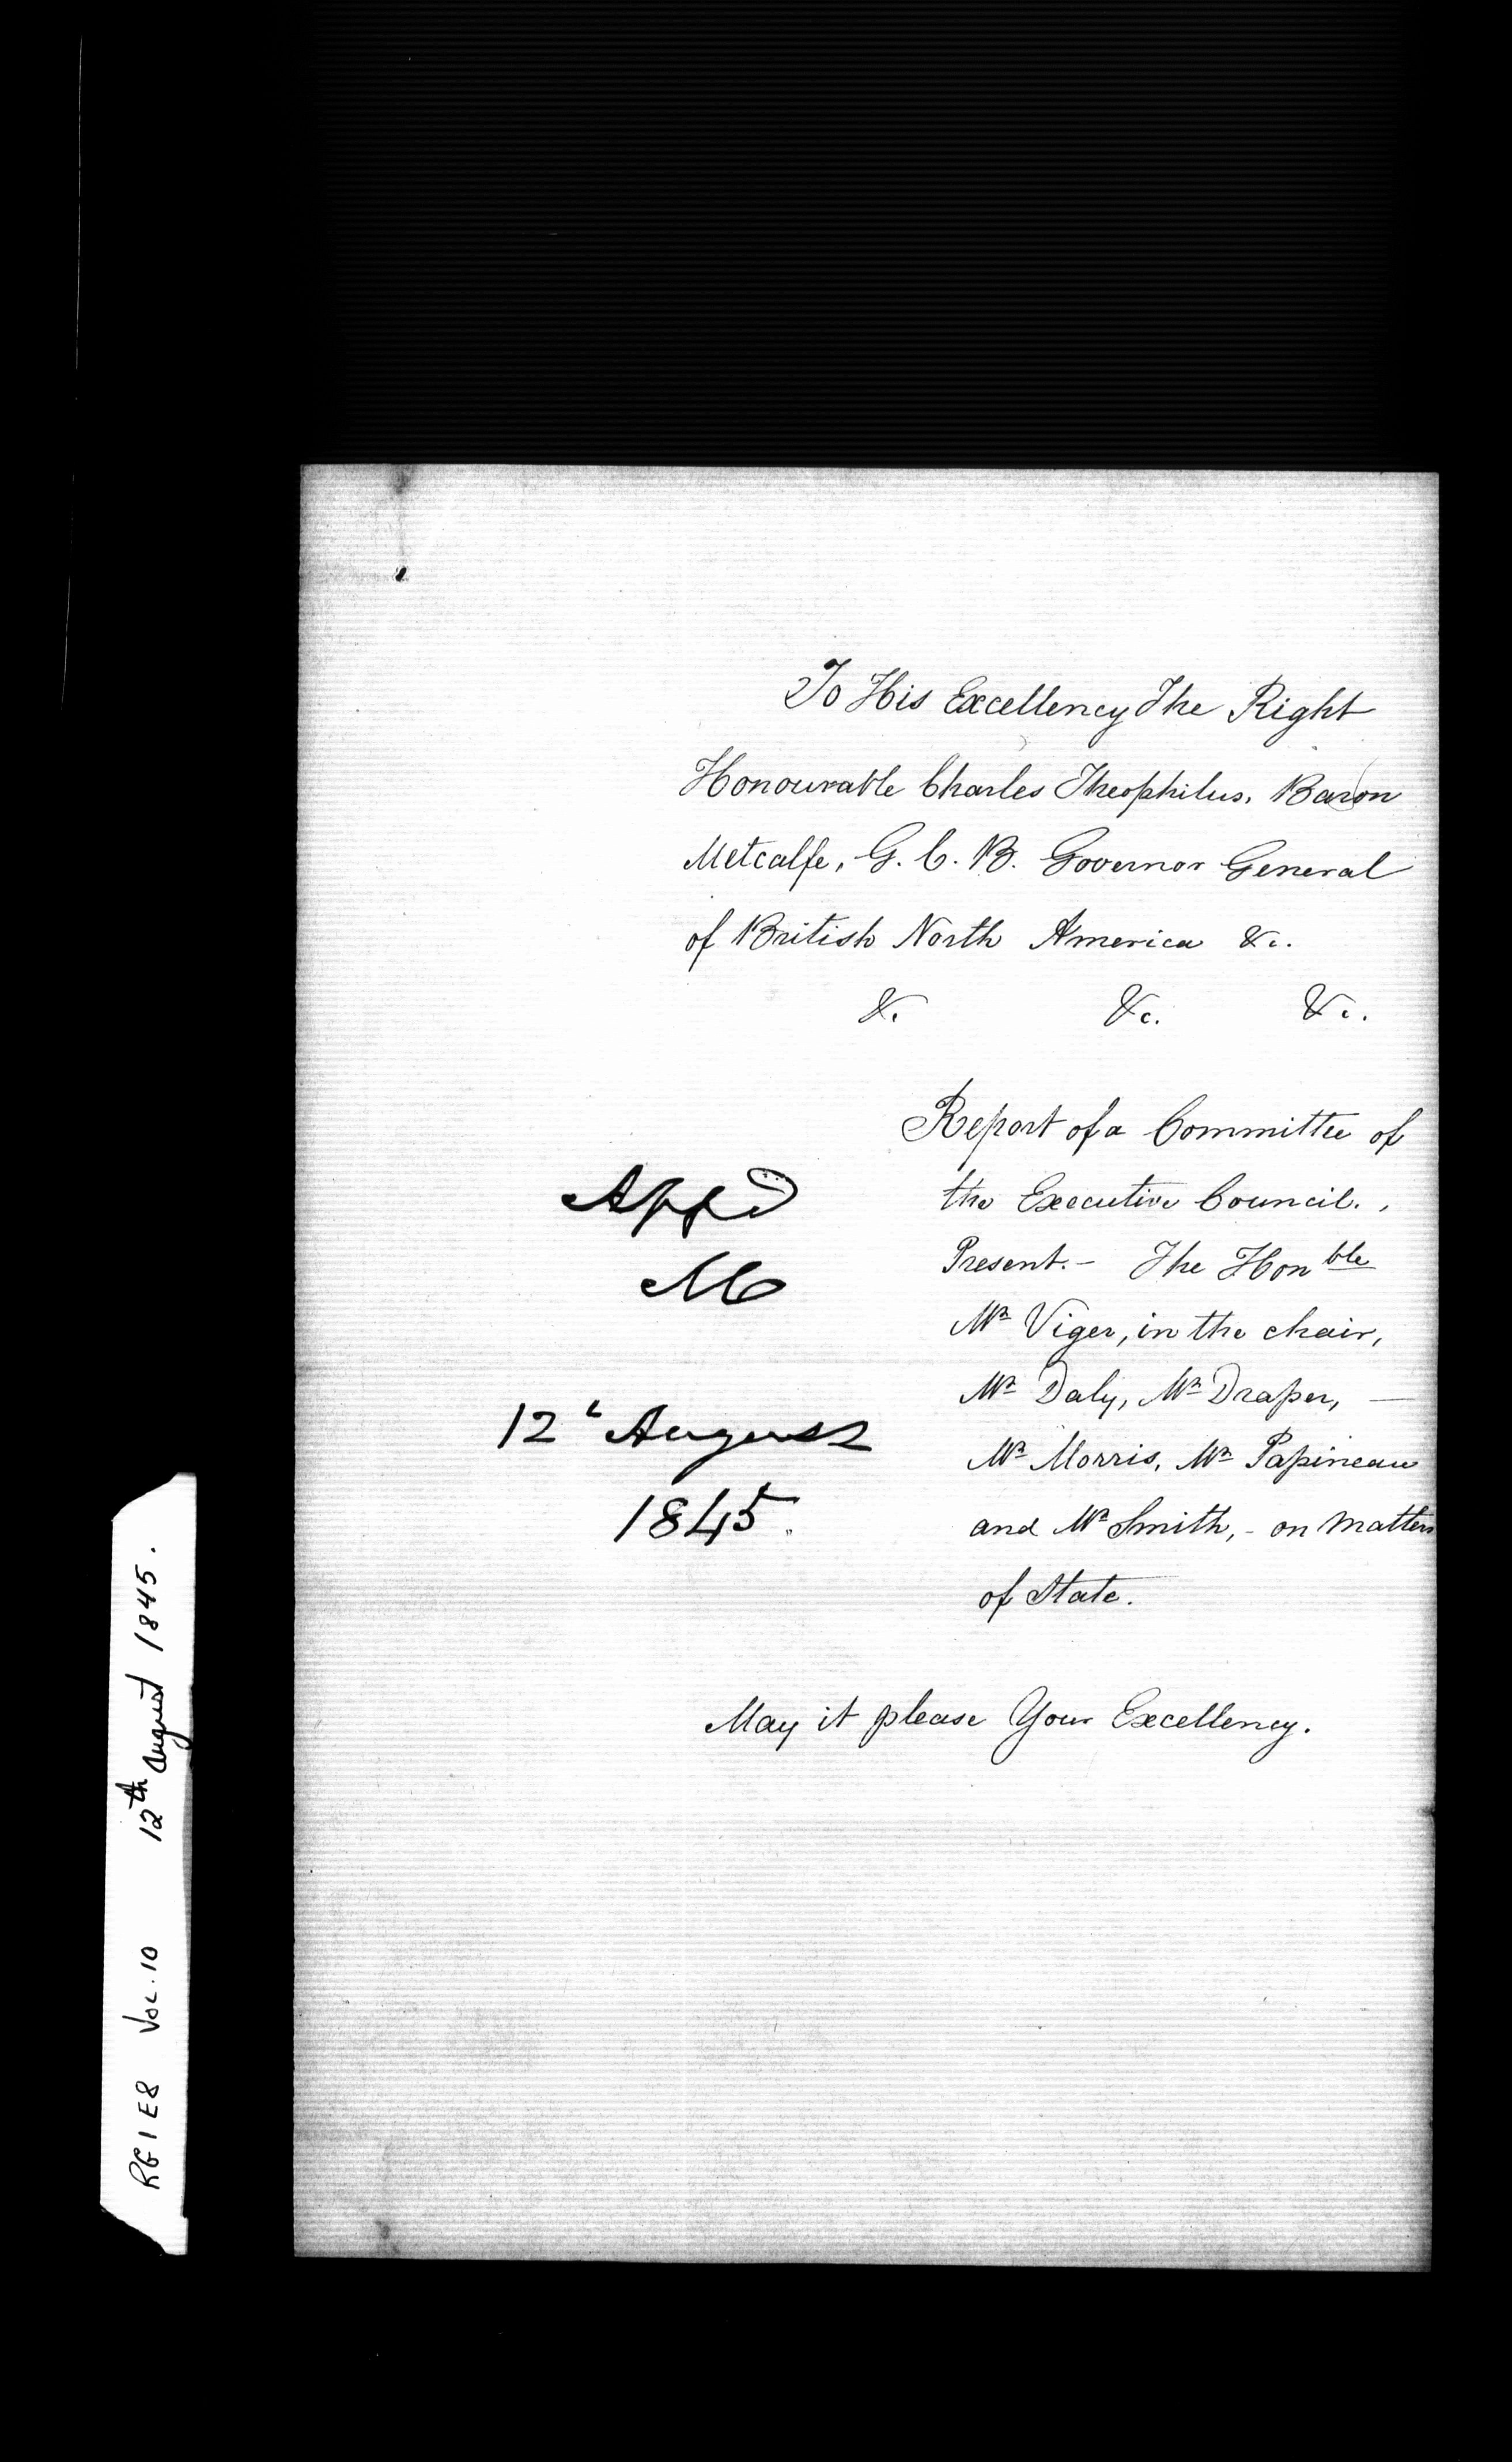 To His Excellency The Right
Honourable Charles Theophilus, Baron
Metcalfe, G. C. B. Governor General
of British North America &c.
&c. &c. &c.
Report of a Committee of
the Executive Council.,
Present.- The Honble
Mr Viger, in the chair,
Mr Daly, Mr Draper, —
Mr Morris, Mr Papineau
and Mr Smith,- on matters
of State.
Appd
M
12th August
1845.
May it please Your Excellency.
RG 1 E8 Vol. 10 12th August 1845.